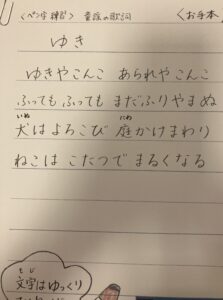 〈ペン字練習〉 童謡の歌詞 〈お手本
ゆき
ゆきやこんこ あられやこんこ
ふっても ふっても まだふりやまぬ
犬はよろこび 庭かけまわり
いぬ にわ
ねこは こたつで まるくなる
もじ
文字はゆっくり